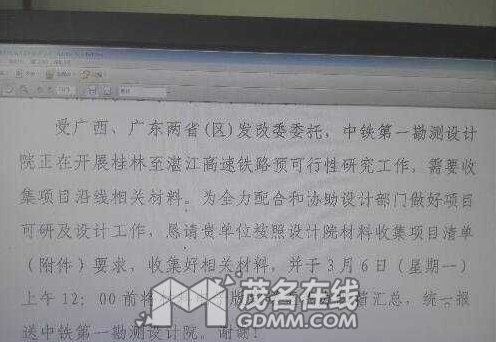 受广西、广东两省(区)发改委委托，中铁第一勘测设计
院正在开展桂林至湛江高速铁路预可行性研究工作，需要收
集项目沿线相关材料。为全力配合和协助设计部门做好项目
可研及设计工作，恳请贵单位按照设计院材料收集项目清单
（附件）要求，收集好相关材料，并于3月6日（星期一）
上午12：00前将 汇总，统一报
送中铁第一勘测设计院。谢谢！
茂名在线
GDMM.COM